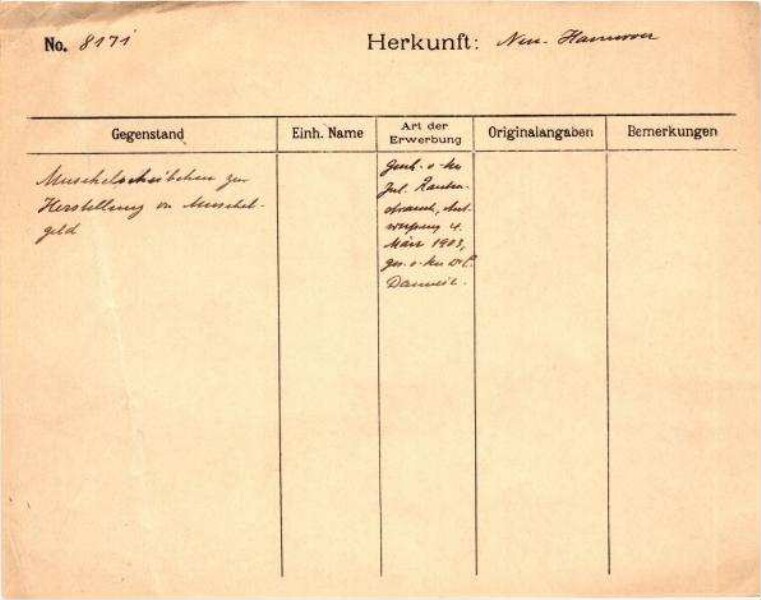 No. 8171 Herkunft: Neu-Hannover
Gegenstand Einh. Name Art der Erwerbung Originalangaben Bemerkungen
Muschelscheibchen zur
Herstellung von Muschel-
geld
Gesch. v. Hrn
Jul. Rauten-
strauch, Ant-
werpen 4.
März 1903,
ges. v. Hrn